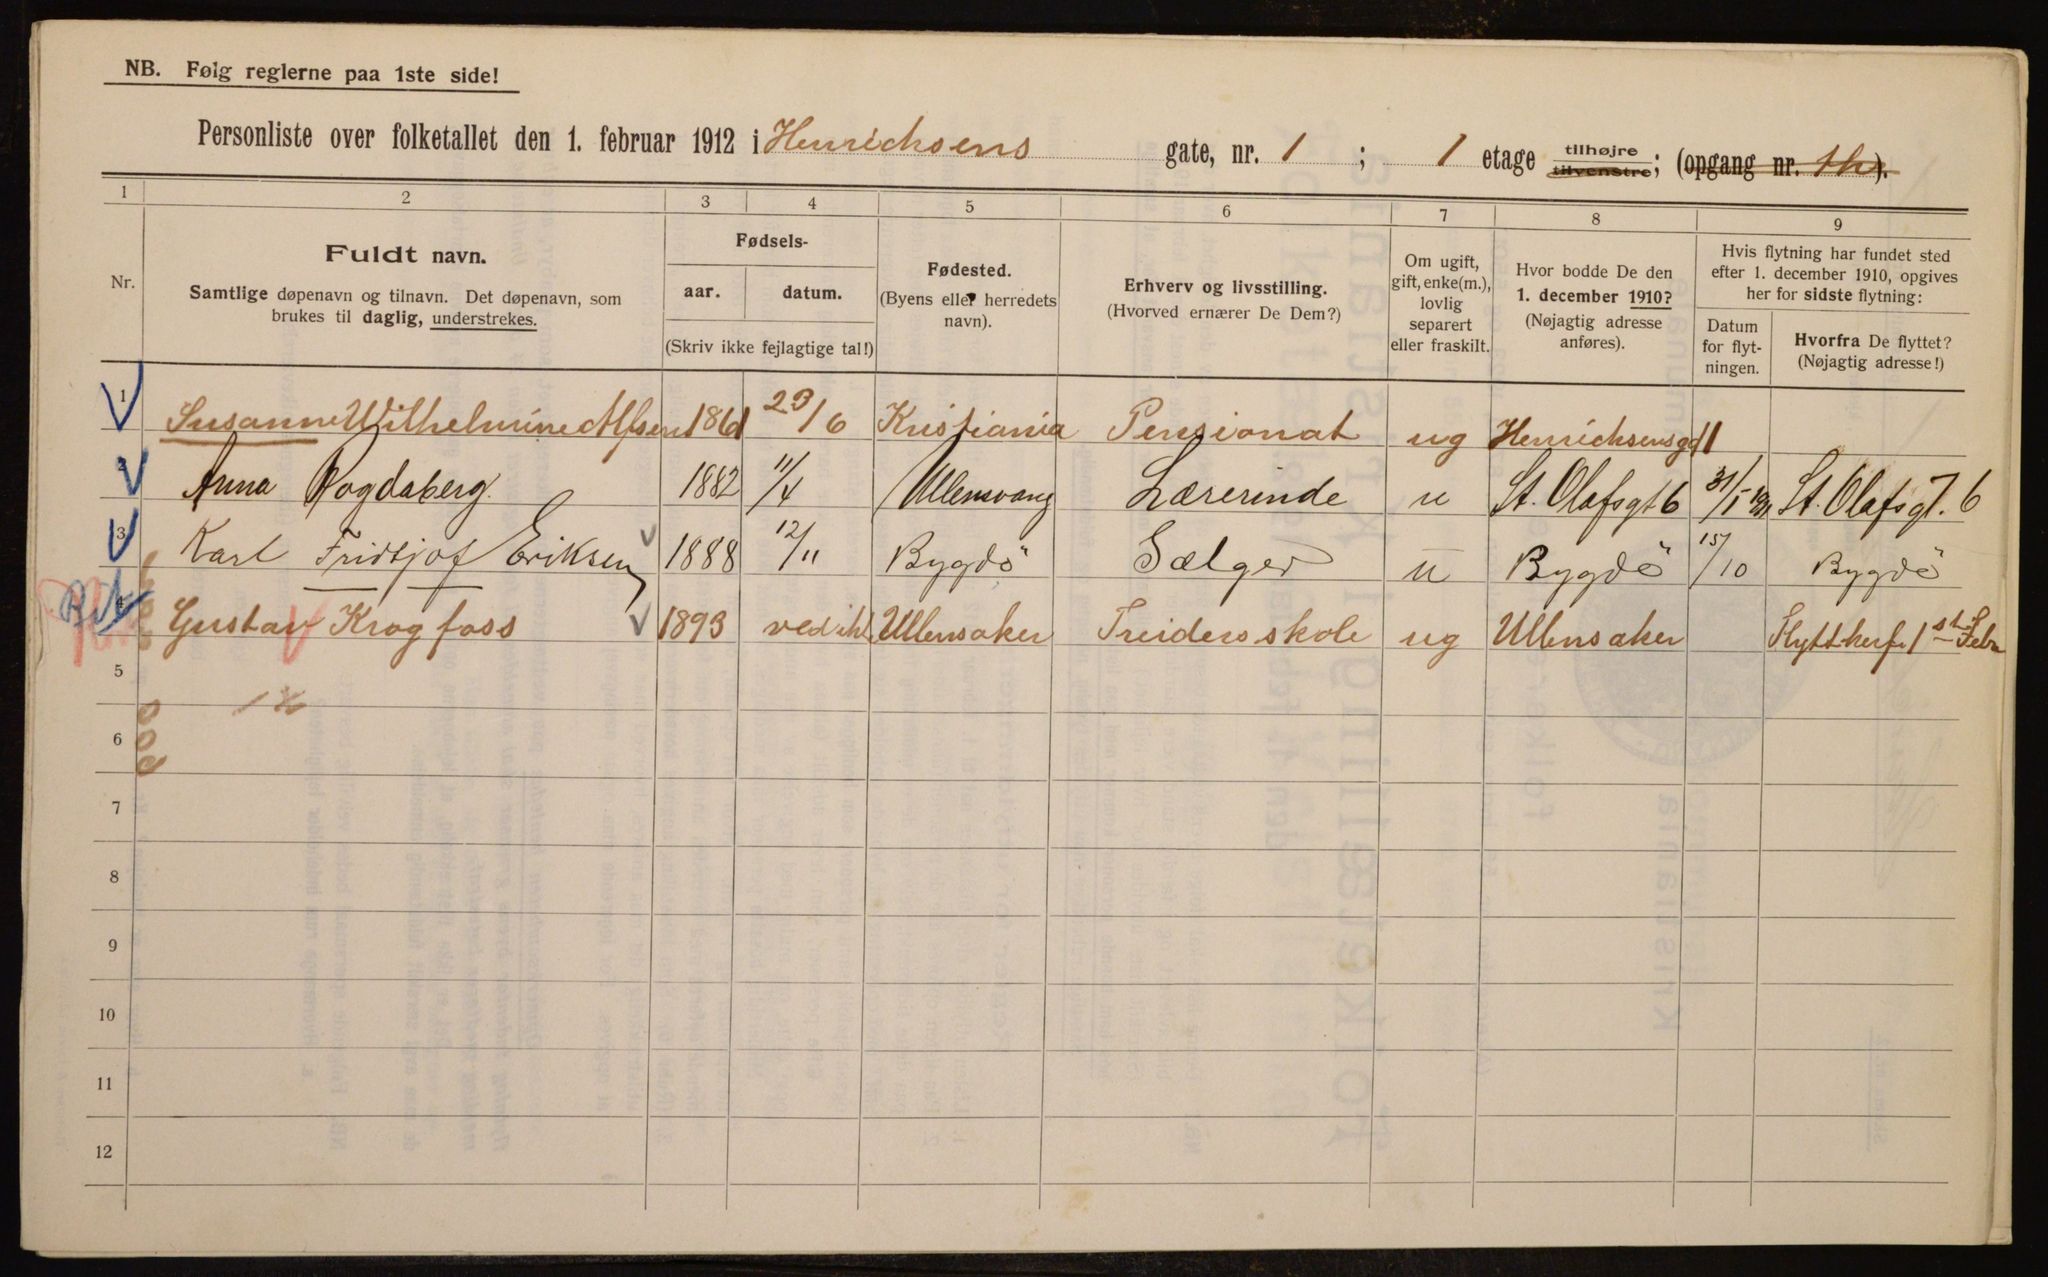 NB. Følg reglerne paa 1ste side!
Personliste over folketallet den 1. februar 1912 i Henrichsens gate, nr. 1 ; 1 etage tilhøjre tilvenstre; (opgang nr. th).
1 2 3 4 5 6 7 8 9
Nr.
Fuldt navn.
Samtlige døpenavn og tilnavn. Det døpenavn, som
brukes til daglig, understrekes.
Fødsels-
aar. datum.
(Skriv ikke fejlagtige tal!)
Fødested.
(Byens eller herredets
navn).
Erhverv og livsstilling.
(Hvorved ernærer De Dem?)
Om ugift,
gift, enke(m.),
lovlig
separert
eller fraskilt.
Hvor bodde De den
1. december 1910?
(Nøjagtig adresse
anføres).
Hvis flytning har fundet sted
efter 1. december 1910, opgives
her for sidste flytning:
Datum
for flyt-
ningen.
Hvorfra De flyttet?
(Nøjagtig adresse!)
1 Susanne Wilhelmine Alfsen 1861 23/6 Kristiania Pensionat ug Henrichsensgd 1
2 Anna Rogdaberg. 1882 11/4 Ullensvang Lærerinde u St. Olafsgt 6 31/1 St. Olafsgt. 6
3 Karl Fridtjof Eriksen 1888 12/11 Bygdö Sælger u Bygdö 15/10 Bygdö
4 Gustav Krogfoss 1893 ved ikke Ullensaker Treiders skole ug Ullensaker Flytt herfr 1st Febr
5
6
7
8
9
10
11
12